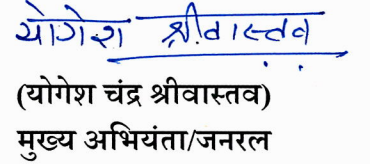 योगेश श्रीवास्तव
(योगेश चंद्र श्रीवास्तव)
मुख्य अभियंता/जनरल